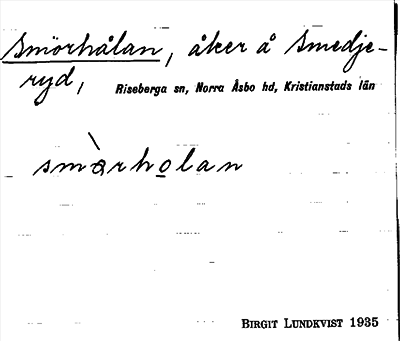 Smörhålan, åker å Smedje-
ryd, Riseberga sn, Norra Åsbo hd, Kristianstads län
smὰrho̲lan
BIRGIT LUNDKVIST 1935